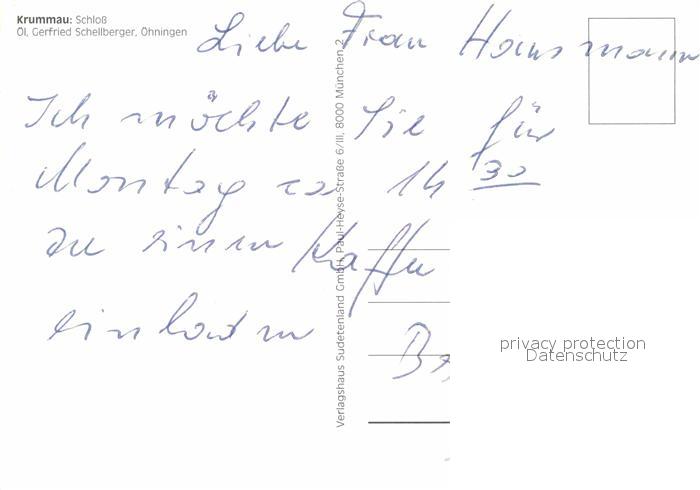 Krummau: Schloß
Öl, Gerfried Schellberger, Öhningen
Liebe Frau Hansmann
Ich möchte Sie für
Montag ca 14 30
zu einem Kaffee
einladen
Verlagshaus Sudetenland GmbH, Paul-Heyse-Straße 6/III, 8000 München 2
privacy protection
Datenschutz